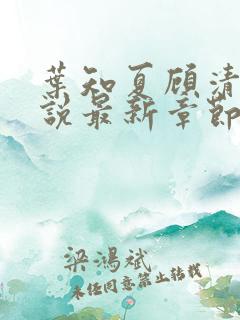 葉知夏顾清
说最新章節
梁鴻斌
未经同意禁止转载